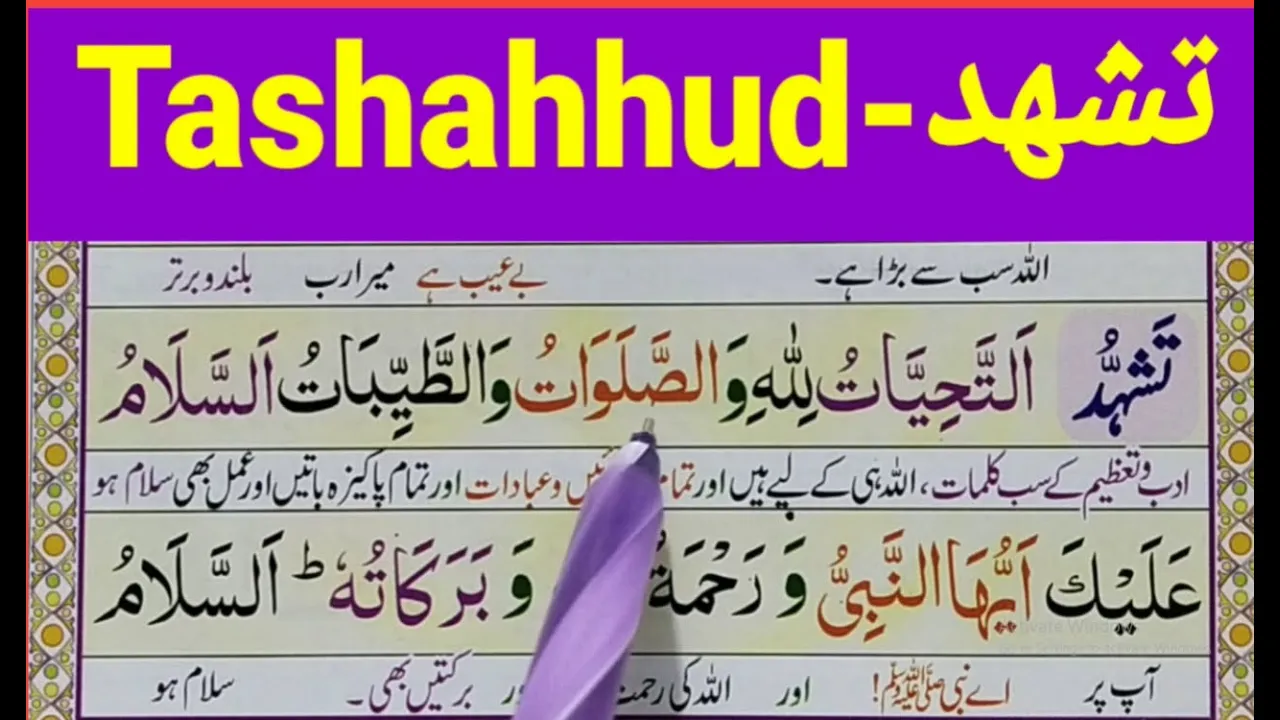 Tashahhud-تشهد
اللہ سب سے بڑا ہے۔ بے عیب ہے میرا رب بلند و برتر
تَشَہُّد
اَلتَّحِيَّاتُ لِلّٰهِ وَالصَّلَوَاتُ وَالطَّيِّبَاتُ اَلسَّلَامُ
ادب و تعظیم کے سب کلمات، اللہ ہی کے لیے ہیں اور تمام و عبادات اور تمام پاکیزہ باتیں اور عمل بھی سلام ہو
عَلَيْكَ اَيُّهَا النَّبِيُّ وَ رَحْمَةُ وَ بَرَكَاتُهٗ ط اَلسَّلَامُ
آپ پر اے نبی ﷺ! اور اللہ کی برکتیں بھی۔ سلام ہو